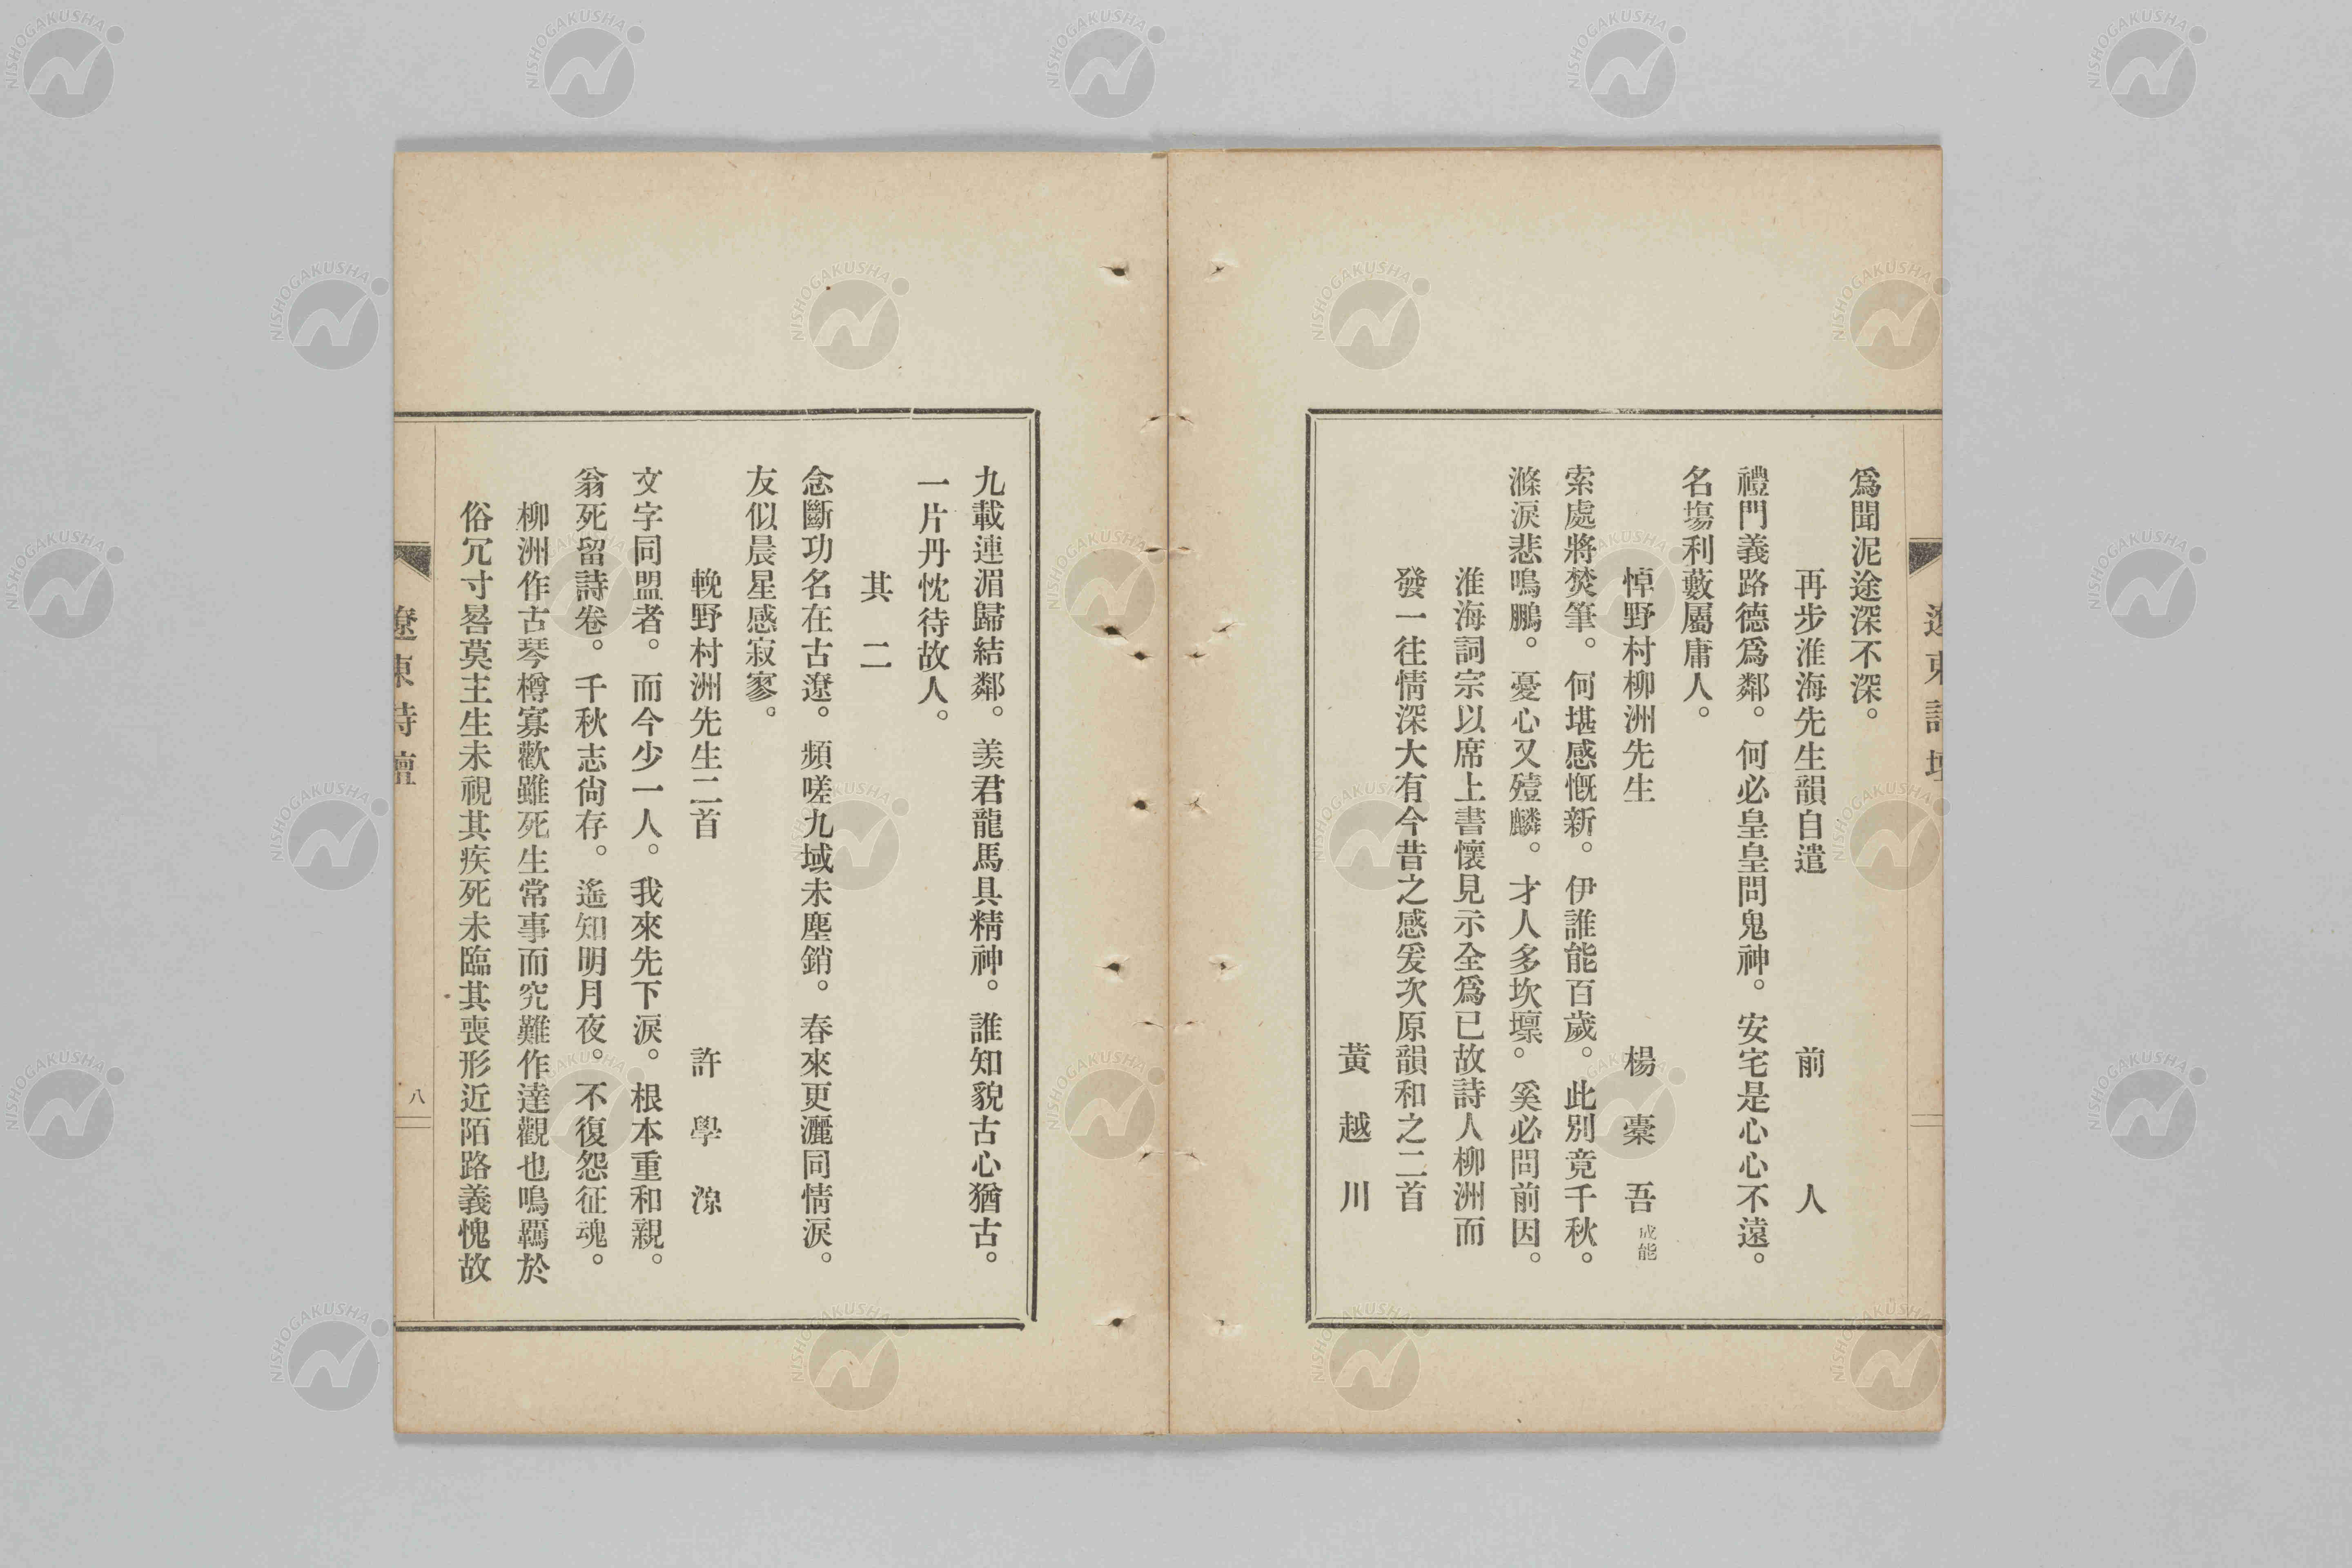 爲聞泥途深不深。
再步淮海先生韻自遣　前人
禮門義路德爲鄰。何必皇皇問鬼神。安宅是心心不遠。
名塲利藪屬庸人。
悼野村柳洲先生　楊槖吾 成能
索處將焚筆。何堪感慨新。伊誰能百歲。此別竟千秋。
滌淚悲鳴鵬。憂心又殪麟。才人多坎壈。奚必問前因。
淮海詞宗以席上書懷見示全爲已故詩人柳洲而
發一往情深大有今昔之感爰次原韻和之二首
黃越川
九載連湄歸結鄰。羨君龍馬具精神。誰知貌古心猶古。
一片丹忱待故人。
其二
念斷功名在古遼。頻嗟九域未塵銷。春來更灑同情淚。
友似晨星感寂寥。
輓野村柳洲先生二首　許學源
文字同盟者。而今少一人。我來先下淚。根本重和親。
翁死留詩卷。千秋志尙存。遙知明月夜。不復怨征魂。
柳洲作古琴樽寡歡雖死生常事而究難作達觀也鳴羈於
俗冗寸晷莫主生未視其疾死未臨其喪形近陌路義愧故
遼東詩壇
八
NISHOGAKUSHA